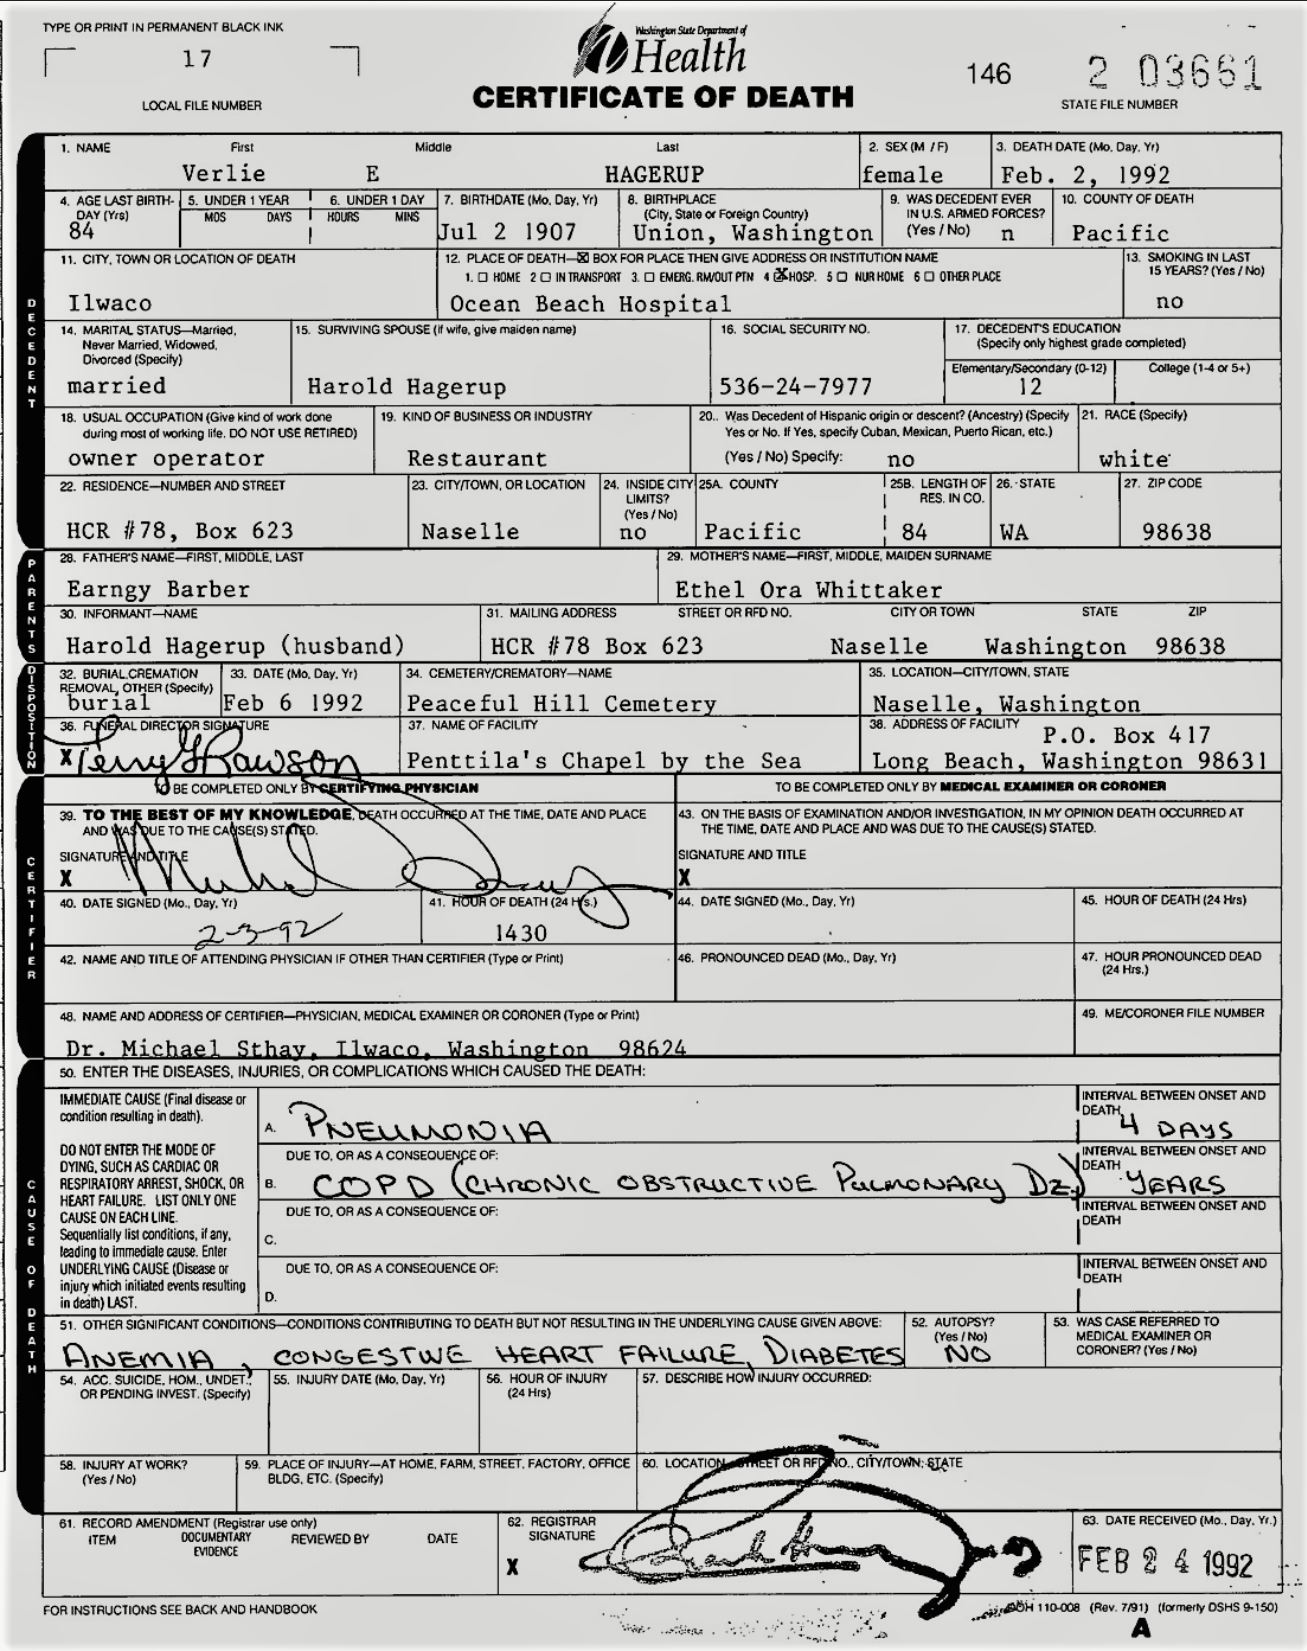 TYPE OR PRINT IN PERMANENT BLACK INK
17
LOCAL FILE NUMBER
Washington State Department of
Health
CERTIFICATE OF DEATH
146 2 03661
STATE FILE NUMBER
DECEDENT
1. NAME First Middle Last
Verlie E HAGERUP
2. SEX (M / F)
female
3. DEATH DATE (Mo, Day, Yr)
Feb. 2, 1992
4. AGE LAST BIRTH-
DAY (Yrs)
84
5. UNDER 1 YEAR
MOS DAYS
6. UNDER 1 DAY
HOURS MINS
7. BIRTHDATE (Mo, Day, Yr)
Jul 2 1907
8. BIRTHPLACE
(City, State or Foreign Country)
Union, Washington
9. WAS DECEDENT EVER
IN U.S. ARMED FORCES?
(Yes / No) n
10. COUNTY OF DEATH
Pacific
11. CITY, TOWN OR LOCATION OF DEATH
Ilwaco
12. PLACE OF DEATH—☒ BOX FOR PLACE THEN GIVE ADDRESS OR INSTITUTION NAME
1. ☐ HOME 2 ☐ IN TRANSPORT 3. ☐ EMERG. RM/OUT PTN 4 ☒ HOSP. 5 ☐ NUR HOME 6 ☐ OTHER PLACE
Ocean Beach Hospital
13. SMOKING IN LAST
15 YEARS? (Yes / No)
no
14. MARITAL STATUS—Married,
Never Married, Widowed,
Divorced (Specify)
married
15. SURVIVING SPOUSE (If wife, give maiden name)
Harold Hagerup
16. SOCIAL SECURITY NO.
536-24-7977
17. DECEDENT'S EDUCATION
(Specify only highest grade completed)
Elementary/Secondary (0-12) College (1-4 or 5+)
12
18. USUAL OCCUPATION (Give kind of work done
during most of working life. DO NOT USE RETIRED)
owner operator
19. KIND OF BUSINESS OR INDUSTRY
Restaurant
20.. Was Decedent of Hispanic origin or descent? (Ancestry) (Specify
Yes or No. If Yes, specify Cuban, Mexican, Puerto Rican, etc.)
(Yes / No) Specify: no
21. RACE (Specify)
white
22. RESIDENCE—NUMBER AND STREET
HCR #78, Box 623
23. CITY/TOWN, OR LOCATION
Naselle
24. INSIDE CITY
LIMITS?
(Yes / No)
no
25A. COUNTY
Pacific
25B. LENGTH OF
RES. IN CO.
84
26. STATE
WA
27. ZIP CODE
98638
PARENTS
28. FATHER'S NAME—FIRST, MIDDLE, LAST
Earngy Barber
29. MOTHER'S NAME—FIRST, MIDDLE, MAIDEN SURNAME
Ethel Ora Whittaker
30. INFORMANT—NAME
Harold Hagerup (husband)
31. MAILING ADDRESS STREET OR RFD NO. CITY OR TOWN STATE ZIP
HCR #78 Box 623 Naselle Washington 98638
DISPOSITION
32. BURIAL,CREMATION
REMOVAL, OTHER (Specify)
burial
33. DATE (Mo, Day, Yr)
Feb 6 1992
34. CEMETERY/CREMATORY—NAME
Peaceful Hill Cemetery
35. LOCATION—CITY/TOWN, STATE
Naselle, Washington
36. FUNERAL DIRECTOR SIGNATURE
X Terry G Rawson
37. NAME OF FACILITY
Penttila's Chapel by the Sea
38. ADDRESS OF FACILITY P.O. Box 417
Long Beach, Washington 98631
CERTIFIER
TO BE COMPLETED ONLY BY CERTIFYING PHYSICIAN
39. TO THE BEST OF MY KNOWLEDGE, DEATH OCCURRED AT THE TIME, DATE AND PLACE
AND WAS DUE TO THE CAUSE(S) STATED.
SIGNATURE AND TITLE
X
40. DATE SIGNED (Mo., Day, Yr)
2-3-92
41. HOUR OF DEATH (24 Hrs.)
1430
42. NAME AND TITLE OF ATTENDING PHYSICIAN IF OTHER THAN CERTIFIER (Type or Print)
TO BE COMPLETED ONLY BY MEDICAL EXAMINER OR CORONER
43. ON THE BASIS OF EXAMINATION AND/OR INVESTIGATION, IN MY OPINION DEATH OCCURRED AT
THE TIME, DATE AND PLACE AND WAS DUE TO THE CAUSE(S) STATED.
SIGNATURE AND TITLE
X
44. DATE SIGNED (Mo., Day, Yr)
45. HOUR OF DEATH (24 Hrs)
46. PRONOUNCED DEAD (Mo., Day, Yr)
47. HOUR PRONOUNCED DEAD
(24 Hrs.)
48. NAME AND ADDRESS OF CERTIFIER—PHYSICIAN, MEDICAL EXAMINER OR CORONER (Type or Print)
Dr. Michael Sthay, Ilwaco, Washington 98624
49. ME/CORONER FILE NUMBER
CAUSE OF DEATH
50. ENTER THE DISEASES, INJURIES, OR COMPLICATIONS WHICH CAUSED THE DEATH:
IMMEDIATE CAUSE (Final disease or
condition resulting in death).
DO NOT ENTER THE MODE OF
DYING, SUCH AS CARDIAC OR
RESPIRATORY ARREST, SHOCK, OR
HEART FAILURE. LIST ONLY ONE
CAUSE ON EACH LINE.
Sequentially list conditions, if any,
leading to immediate cause. Enter
UNDERLYING CAUSE (Disease or
injury which initiated events resulting
in death) LAST.
A. PNEUMONIA
INTERVAL BETWEEN ONSET AND
DEATH
4 DAYS
DUE TO, OR AS A CONSEQUENCE OF:
B. COPD (CHRONIC OBSTRUCTIVE PULMONARY DZ.)
INTERVAL BETWEEN ONSET AND
DEATH
YEARS
DUE TO, OR AS A CONSEQUENCE OF:
C.
INTERVAL BETWEEN ONSET AND
DEATH
DUE TO, OR AS A CONSEQUENCE OF:
D.
INTERVAL BETWEEN ONSET AND
DEATH
51. OTHER SIGNIFICANT CONDITIONS—CONDITIONS CONTRIBUTING TO DEATH BUT NOT RESULTING IN THE UNDERLYING CAUSE GIVEN ABOVE:
ANEMIA, CONGESTIVE HEART FAILURE, DIABETES
52. AUTOPSY?
(Yes / No)
NO
53. WAS CASE REFERRED TO
MEDICAL EXAMINER OR
CORONER? (Yes / No)
54. ACC. SUICIDE, HOM., UNDET.,
OR PENDING INVEST. (Specify)
55. INJURY DATE (Mo, Day, Yr)
56. HOUR OF INJURY
(24 Hrs)
57. DESCRIBE HOW INJURY OCCURRED:
58. INJURY AT WORK?
(Yes / No)
59. PLACE OF INJURY—AT HOME, FARM, STREET, FACTORY, OFFICE
BLDG, ETC. (Specify)
60. LOCATION—STREET OR RFD NO., CITY/TOWN, STATE
61. RECORD AMENDMENT (Registrar use only)
ITEM DOCUMENTARY EVIDENCE REVIEWED BY DATE
62. REGISTRAR
SIGNATURE
X
63. DATE RECEIVED (Mo., Day, Yr.)
FEB 24 1992
FOR INSTRUCTIONS SEE BACK AND HANDBOOK
DOH 110-008 (Rev. 7/91) (formerly DSHS 9-150)
A